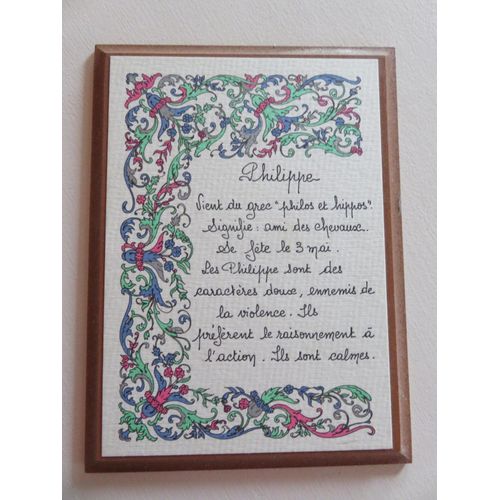 Philippe
Vient du grec "philos et hippos".
Signifie : ami des chevaux.
Se fête le 3 mai.
Les Philippe sont des
caractères doux, ennemis de
la violence. Ils
préfèrent le raisonnement à
l'action. Ils sont calmes.